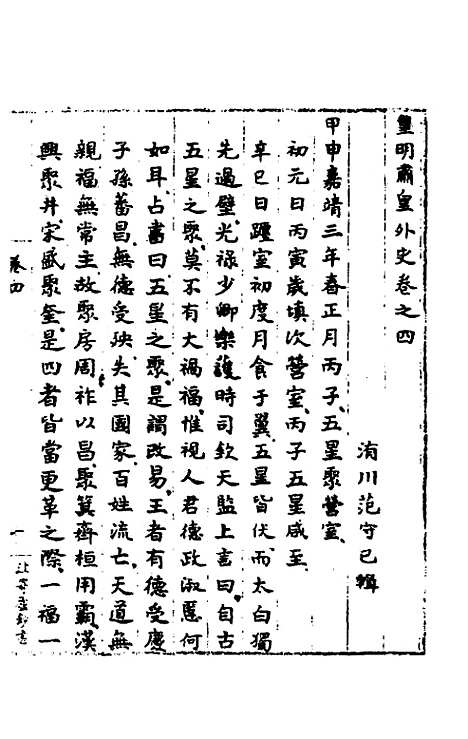 皇明肅皇外史卷之四
洧川范守己輯
甲申嘉靖三年春正月丙子五星聚營室
初元日丙寅歲填次營室丙子五星咸至
辛巳日躔室初度月食于翼五星皆伏而太白獨
先過璧光祿少卿樂頀時司欽天監上言曰自古
五星之聚莫不有大禍福惟視人君德政淑慝何
如耳占書曰五星之聚是謂改易王者有德受慶
子孫蕃昌無德受殃失其國家百姓流亡天道無
親福無常主故聚房周祚以昌聚箕齊桓用霸漢
興聚井宋盛聚奎是四者皆當更革之際一福一
卷四
一